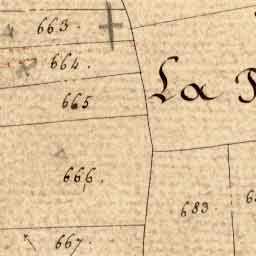 663.
664.
665
La
666.
683.
667.